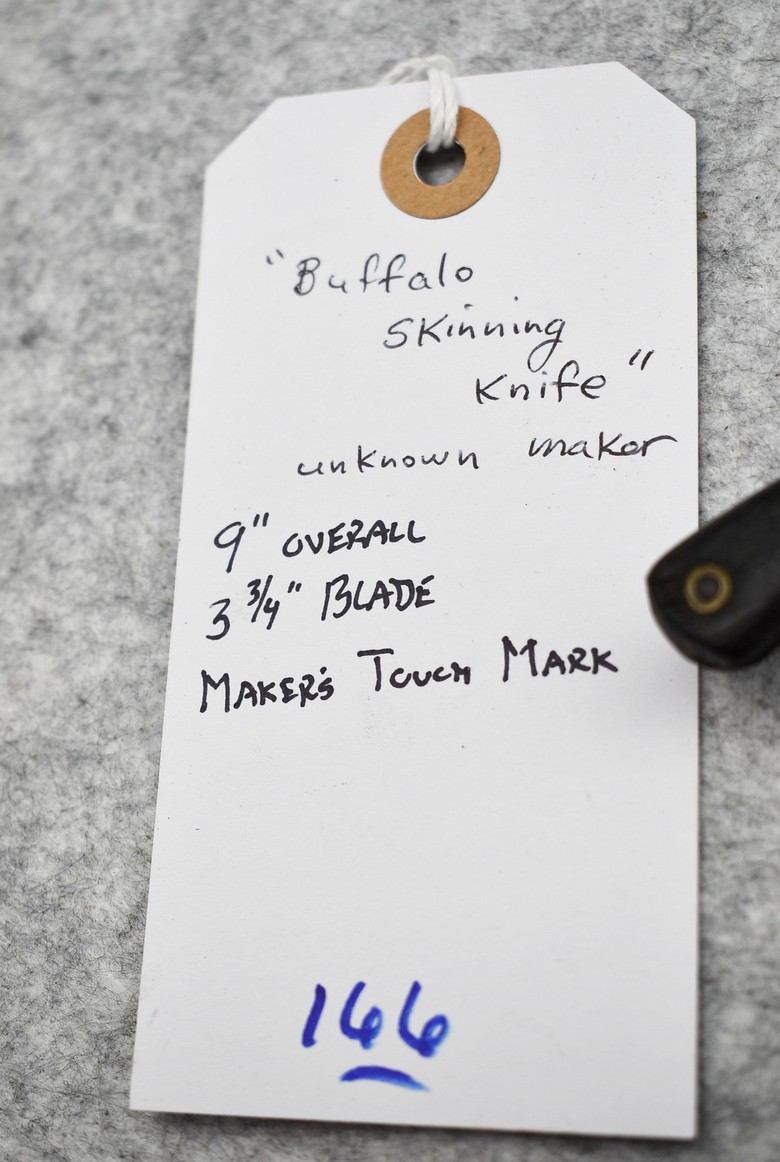 "Buffalo
Skinning
Knife"
unknown maker
9" OVERALL
3 3/4" BLADE
MAKER'S TOUCH MARK
166